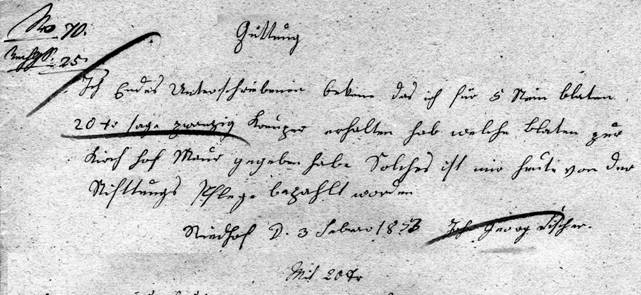 No. 70.
25.
Quittung
Ich Endes Unterschriebener bekene das ich für 5 Stein blaten
20 Xr sage zwanzig Kreuzer erhalten hab welche blaten zur
Kirch hof Maur gegeben habe Solches ist mir heute von der
Stifttungs Pflege bezahlt worden
Riedhof d. 3 Febru Joh Georg Fischer.
Mit 20 Xr